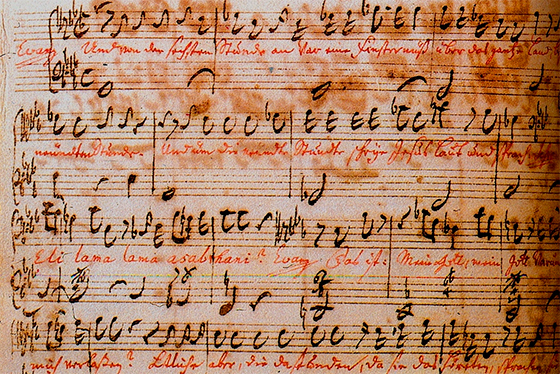 Evang. Und von der sechsten Stunde an war eine Finsternuß über das gantze Land
neundten Stunde. Und um die neundte Stunde schrye Jesus laut und sprach
Eli lama lama asabthani? Evang. Das ist: Mein Gott, mein Gott warum
mich verlaßen? Etliche aber, die da stunden, da sie das höreten, sprachen